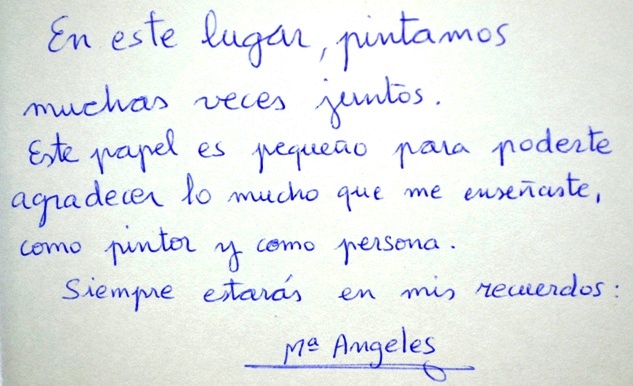 En este lugar, pintamos
muchas veces juntos.
Este papel es pequeño para poderte
agradecer lo mucho que me enseñaste,
como pintor y como persona.
Siempre estarás en mis recuerdos:
Mª Angeles